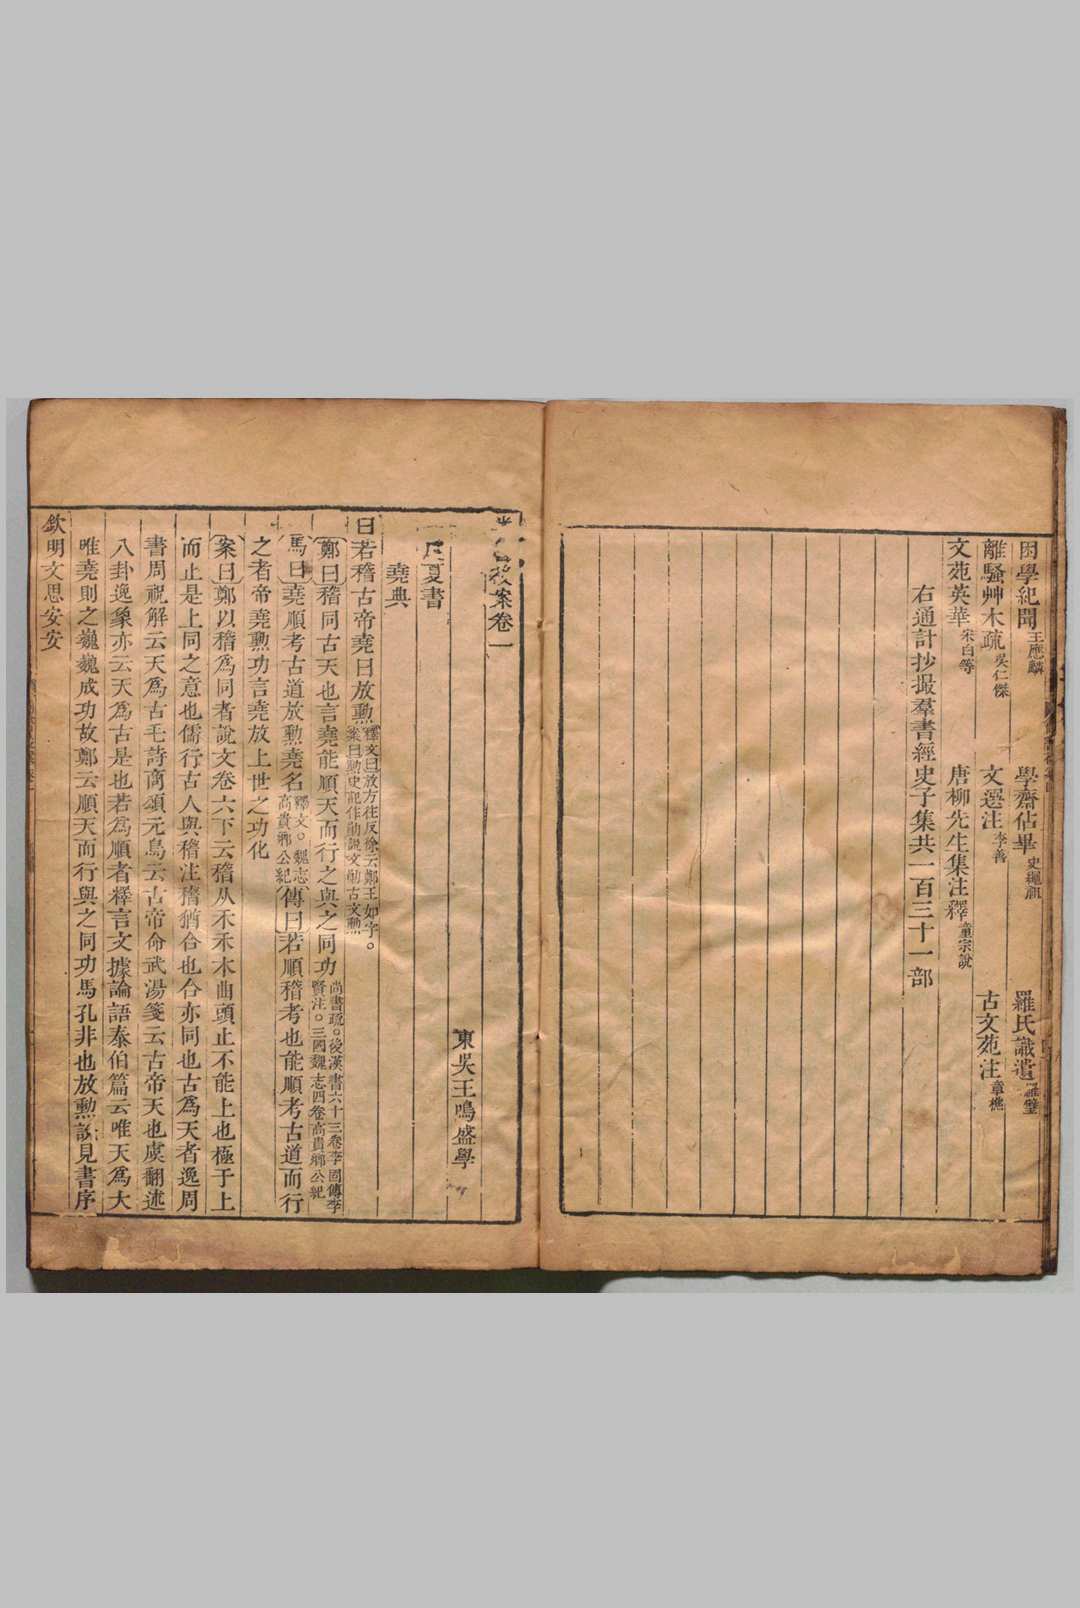 困學紀聞王應麟 學齋佔畢史繩祖 羅氏識遺羅璧
離騷艸木疏吳仁傑 文選注李善 古文苑注章樵
文苑英華宋白等 唐柳先生集注釋童宗說
右通計抄撮羣書經史子集共一百三十一部
後案卷一
東吳王鳴盛學
夏書
堯典
曰若稽古帝堯曰放勲釋文曰放方往反徐云鄭王如字○案曰勲史記作勛說文勛古文勲
鄭曰稽同古天也言堯能順天而行之與之同功尚書疏○後漢書六十三卷李固傳李賢注○三國魏志四卷高貴鄉公紀
馬曰堯順考古道放勲堯名釋文○魏志高貴鄉公紀傳曰若順稽考也能順考古道而行
之者帝堯勲功言堯放上世之功化
案曰鄭以稽爲同者說文卷六下云稽从禾禾木曲頭止不能上也極于上
而止是上同之意也儒行古人與稽注稽猶合也合亦同也古爲天者逸周
書周祝解云天爲古毛詩商頌元鳥云古帝命武湯箋云古帝天也虞翻述
八卦逸象亦云天爲古是也若爲順者釋言文據論語泰伯篇云唯天爲大
唯堯則之巍巍成功故鄭云順天而行與之同功馬孔非也放勲說見書序
欽明文思安安